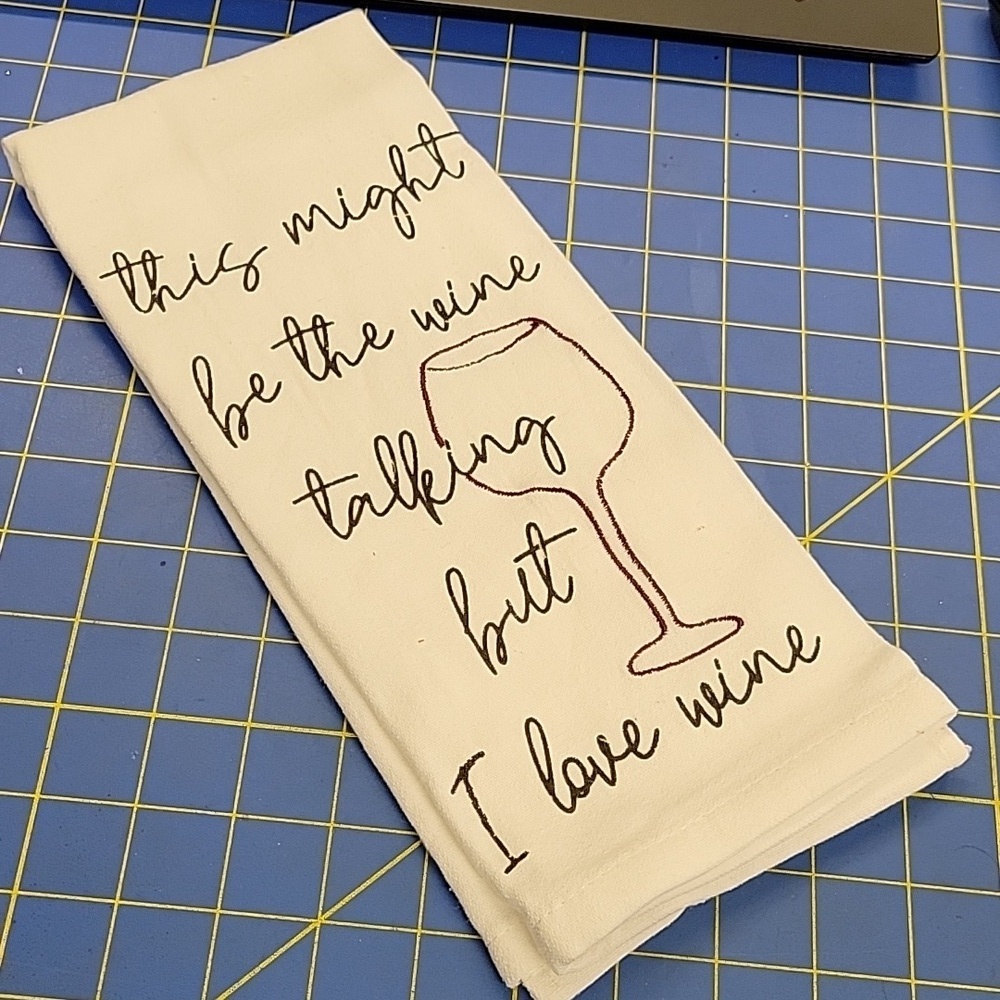 this might
be the wine
talking
but
I love wine